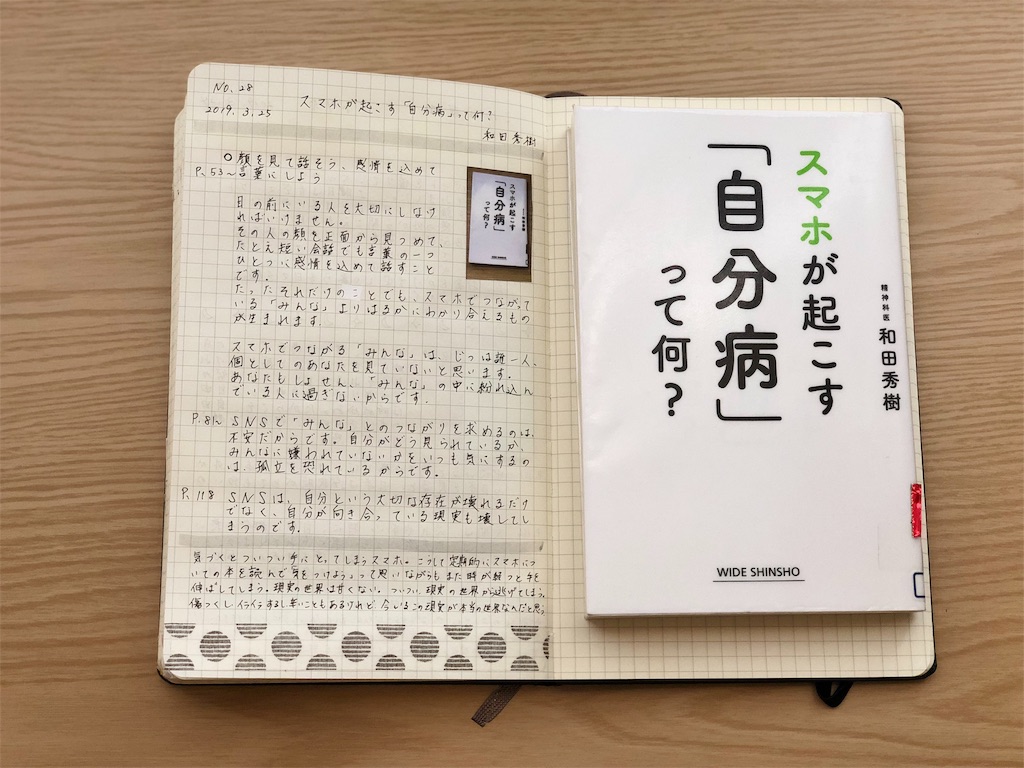 No. 28
2019. 3. 25
スマホが起こす「自分病」って何?
和田秀樹
○顔を見て話そう、感情を込めて
P. 53~言葉にしよう
目の前にいる人を大切にしなけ
ればいけません。
その人の顔を正面から見つめて、
たとえ短い会話でも言葉の一つ
ひとつに感情を込めて話すこと
です。
たったそれだけのことでも、スマホでつながって
いる「みんな」よりはるかにわかり合えるもの
が生まれます。
スマホでつながる「みんな」は、じつは誰一人、
個としてのあなたを見ていないと思います。
あなたもしょせん、「みんな」の中に紛れ込ん
でいる人に過ぎないからです。
P. 81~ SNSで「みんな」とのつながりを求めるのは、
不安だからです。自分がどう見られているか、
みんなに嫌われていないかをいつも気にするの
は、孤立を恐れているからです。
P. 118 SNSは、自分という大切な存在が壊れるだけ
でなく、自分が向き合っている現実も壊してし
まうのです。
気づくとついつい手にとってしまうスマホ。こうして定期的にスマホにつ
いての本を読んで「気をつけよう」って思いながらもまた時が経つと手を
伸ばしてしまう。現実の世界は甘くない。ついつい現実の世界から逃げてしまう。
傷つくし、イライラするし辛いこともあるけれど今いるこの現実が本当の世界なんだと思う。
スマホが起こす
「自分病」
って何?
スマホが起こす
「自分病」
って何?
精神科医 和田秀樹
WIDE SHINSHO